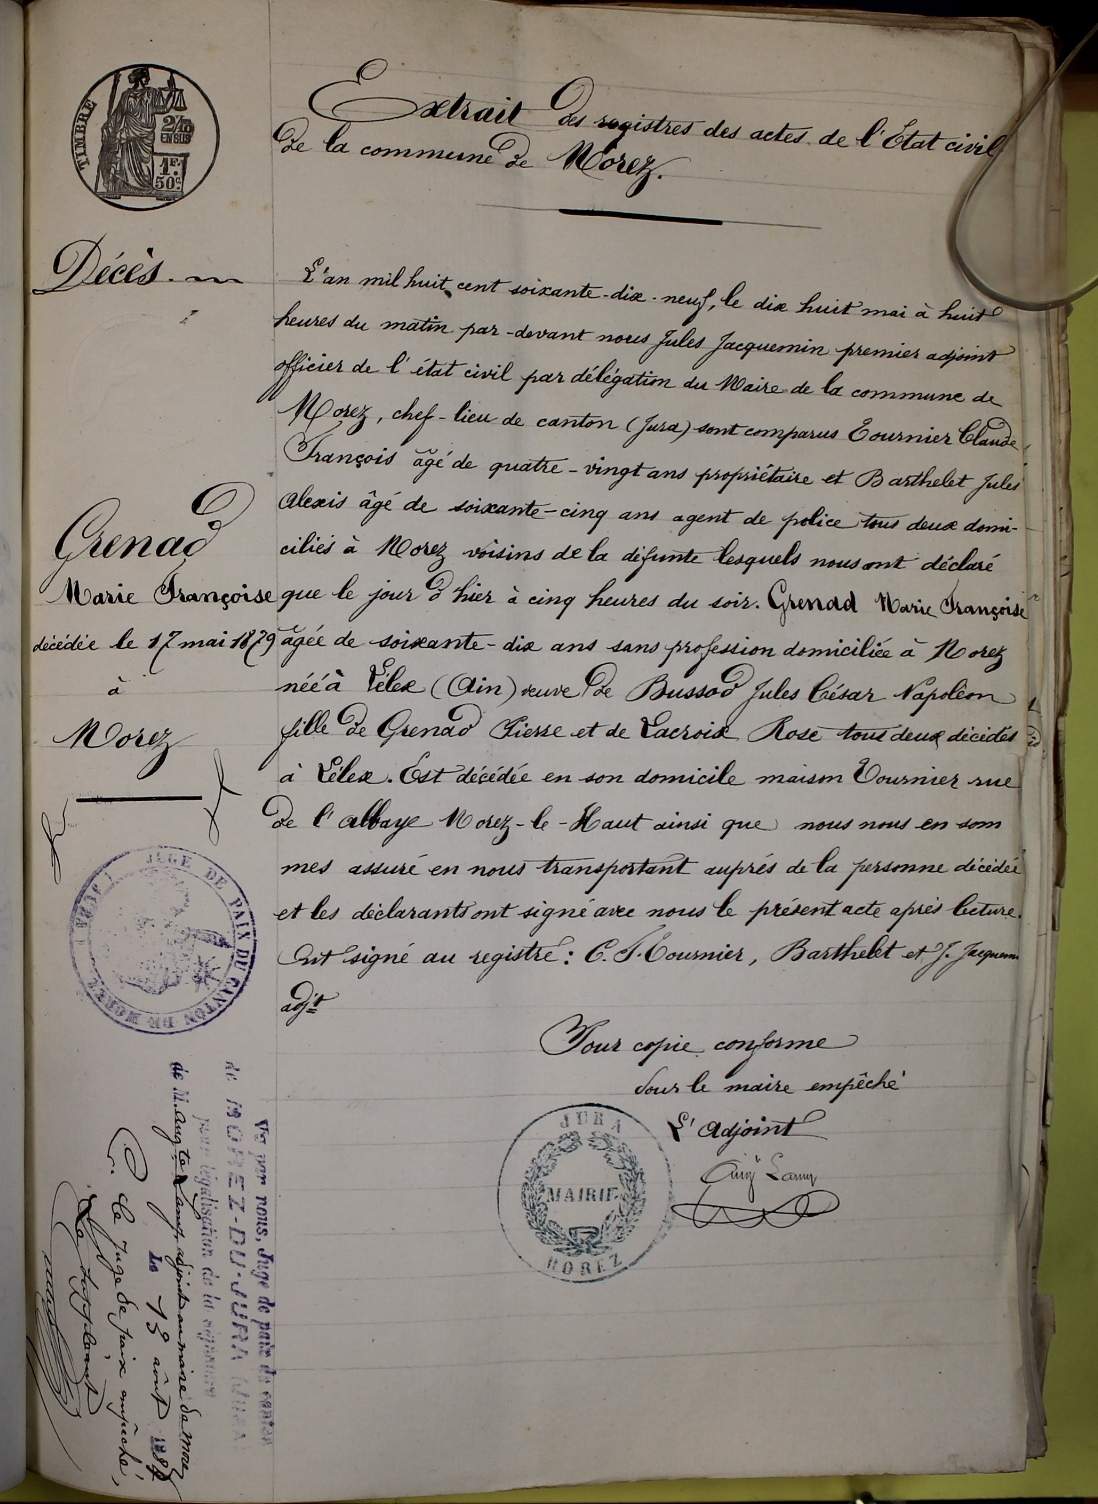 Extrait des registres des actes de l'Etat civil
de la commune de Morez.
TIMBRE
2/10
EN SUS
1F.
50c.
Décès.
Grenad
Marie Françoise
décédée le 17 mai 1879
à
Morez
L'an mil huit cent soixante-dix-neuf, le dix huit mai à huit
heures du matin par-devant nous Jules Jacquemin premier adjoint
officier de l'état civil par délégation du Maire de la commune de
Morez, chef-lieu de canton (Jura) sont comparus Tournier Claude
François âgé de quatre-vingt ans propriétaire et Barthelet Jules
Alexis âgé de soixante-cinq ans agent de police tous deux domi-
ciliés à Morez voisins de la défunte lesquels nous ont déclaré
que le jour d'hier à cinq heures du soir. Grenad Marie Françoise
âgée de soixante-dix ans sans profession domiciliée à Morez
née à Lélex (Ain) veuve de Bussod Jules César Napoléon
fille de Grenad Pierre et de Lacroix Rose tous deux décédés
à Lélex. Est décédée en son domicile maison Tournier rue
de l'abbaye Morez-le-Haut ainsi que nous nous en som
mes assuré en nous transportant auprés de la personne décédée
et les déclarants ont signé avec nous le présent acte après lecture.
Ont signé au registre: C. F. Tournier, Barthelet et J. Jacquemin
adjt
Pour copie conforme
Pour le maire empêché
L'Adjoint
Aug Lamy
JURA
MAIRIE
MOREZ
JUGE DE PAIX DU CANTON DE MOREZ (JURA)
Vu par nous, Juge de paix du canton
de MOREZ-DU-JURA (JURA)
pour légalisation de la signature
de M. Augte Lamy, adjoint au maire de Morez
Le 13 août 1884
P. le Juge de paix empêché,
Le suppléant